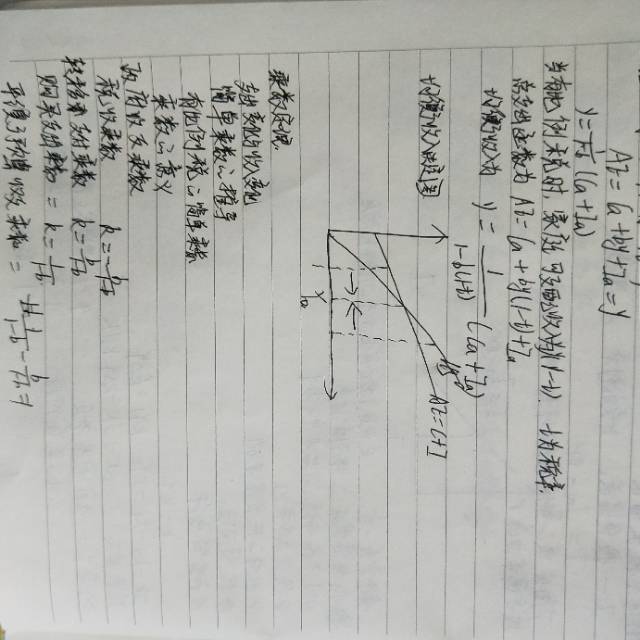 AE = Ca + by + Ia = y
y = 1/(1-b) (Ca + Ia)
当有比例税时,家庭可支配收入为y(1-t), t为税率
总支出函数为 AE = Ca + by(1-t) + Ia
均衡收入为 y = 1/(1-b(1-t)) (Ca + Ia)
均衡收入决定图
AE=C+I
y₀
乘数原理
简单乘数的推导
有比例税的简单乘数
乘数的意义
政府收支乘数
税收乘数 k = -b/(1-b)
转移支付乘数 k = b/(1-b)
购买支出乘数 = k = 1/(1-b)
平衡预算乘数 = 1/(1-b) - b/(1-b) = 1